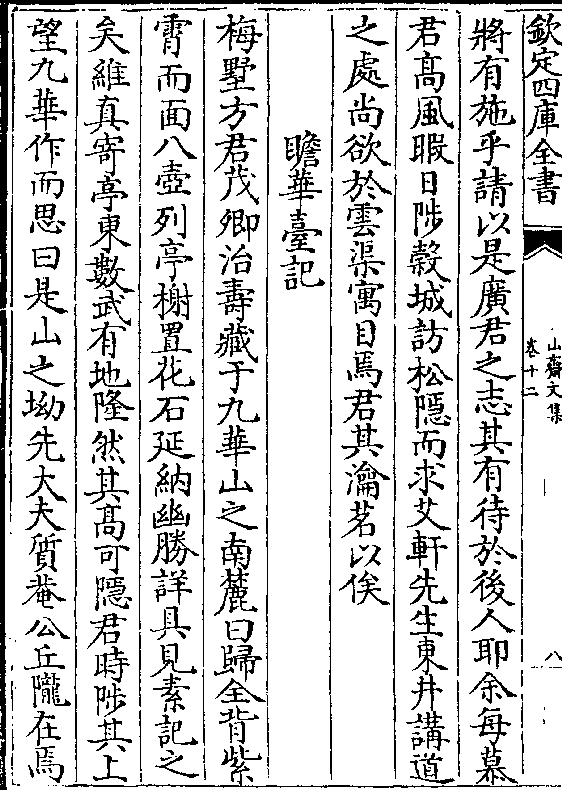 欽定四庫全書
山齋文集
卷十二
八
將有施乎請以是廣君之志其有待於後人耶余每慕
君髙風暇日陟榖城訪松隱而求艾軒先生東井講道
之處尚欲於雲渠寓目焉君其瀹茗以俟
瞻華臺記
梅墅方君茂卿治壽藏于九華山之南麓曰歸全背紫
霄而面八壺列亭榭置花石延納幽勝詳具見素記之
矣維真寄亭東數武有地隆然其髙可隱君時陟其上
望九華作而思曰是山之㘭先大夫質菴公丘隴在焉